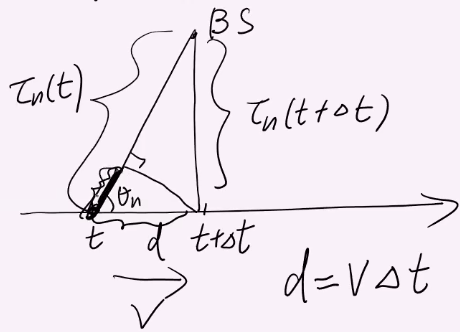 BS
τn(t)
τn(t+Δt)
θn
t d t+Δt
V
d=VΔt